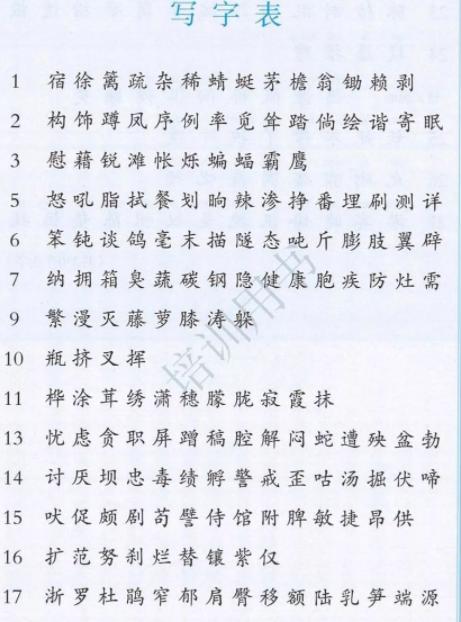 写字表
1 宿徐篱疏杂稀蜻蜓茅檐翁锄赖剥
2 构饰蹲凤序例率觅耸踏倘绘谐寄眠
3 慰藉锐滩怅烁蝙蝠霸鹰
5 怒吼脂拭餐划晌辣渗挣番埋刷测详
6 笨钝谈鸽毫末描隧态吨斤膨肢翼辟
7 纳拥箱臭蔬碳钢隐健康胞疾防灶需
9 繁漫灭藤萝膝涛躲
10 瓶挤叉挥
11 桦涂茸绣潇穗朦胧寂霞抹
13 忧虑贪职屏蹭稿腔解闷蛇遭殃盆勃
14 讨厌坝忠毒绩孵警戒歪咕汤掘伏啼
15 吠促颇剧苟譬侍馆附脾敏捷昂供
16 扩范努刹烂替镶紫仅
17 浙罗杜鹃窄郁肩臀移额陆乳笋端源
培训用书